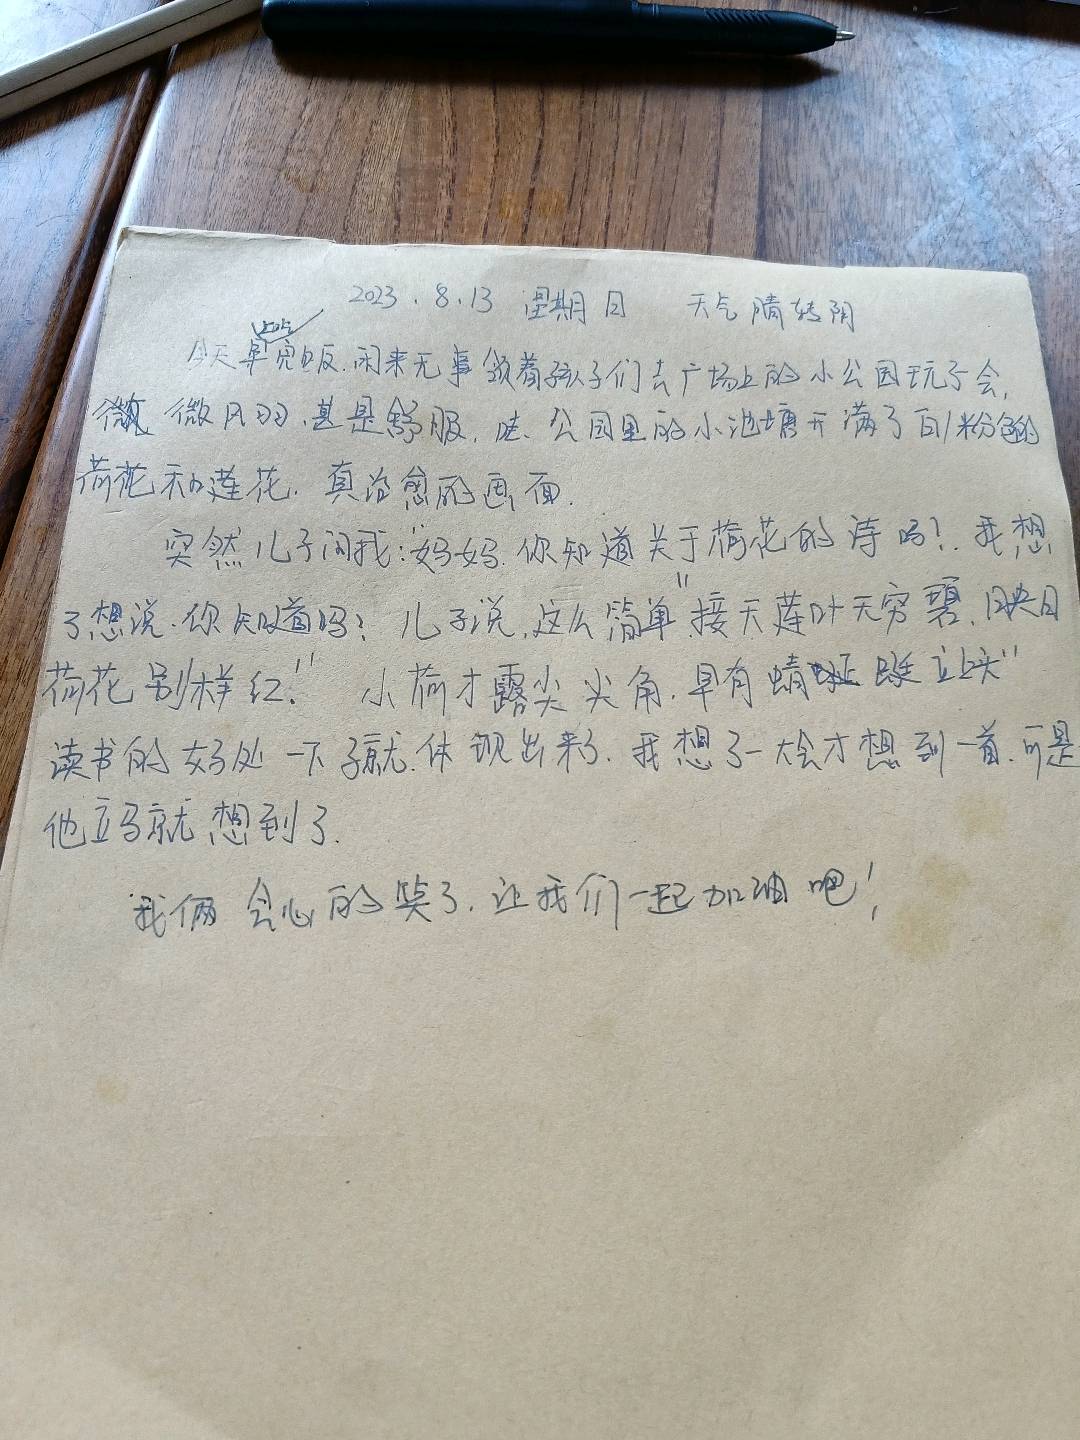 2023.8.13 星期日 天气晴转阴
上吃
今天早完饭.闲来无事领着孩子们去广场上的小公园玩了会,
微微风习习,甚是舒服,哇、公园里的小池塘开满了白/粉色的
荷花和莲花.真治愈的画面.
突然儿子问我:"妈妈.你知道关于荷花的诗吗?.我想
了想说.你知道吗?儿子说,这么简单"接天莲叶无穷碧,映日
荷花别样红."小荷才露尖尖角.早有蜻蜓立上头"
读书的好处一下子就.体现出来了.我想了一大会才想到一首.可是
他立马就想到了.
我俩会心的笑了.让我们一起加油吧!